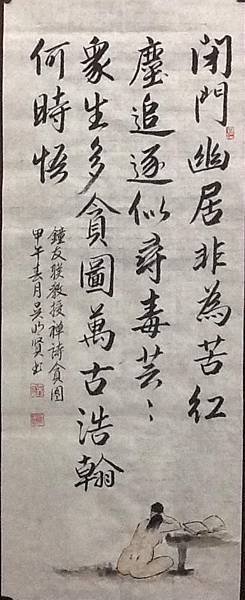 閉門幽居非為苦紅
塵追逐似尋毒芸〻
衆生多貪圖萬古浩翰
何時悟
鐘友联教授禅詩貪圖
甲午春月吴明賢书